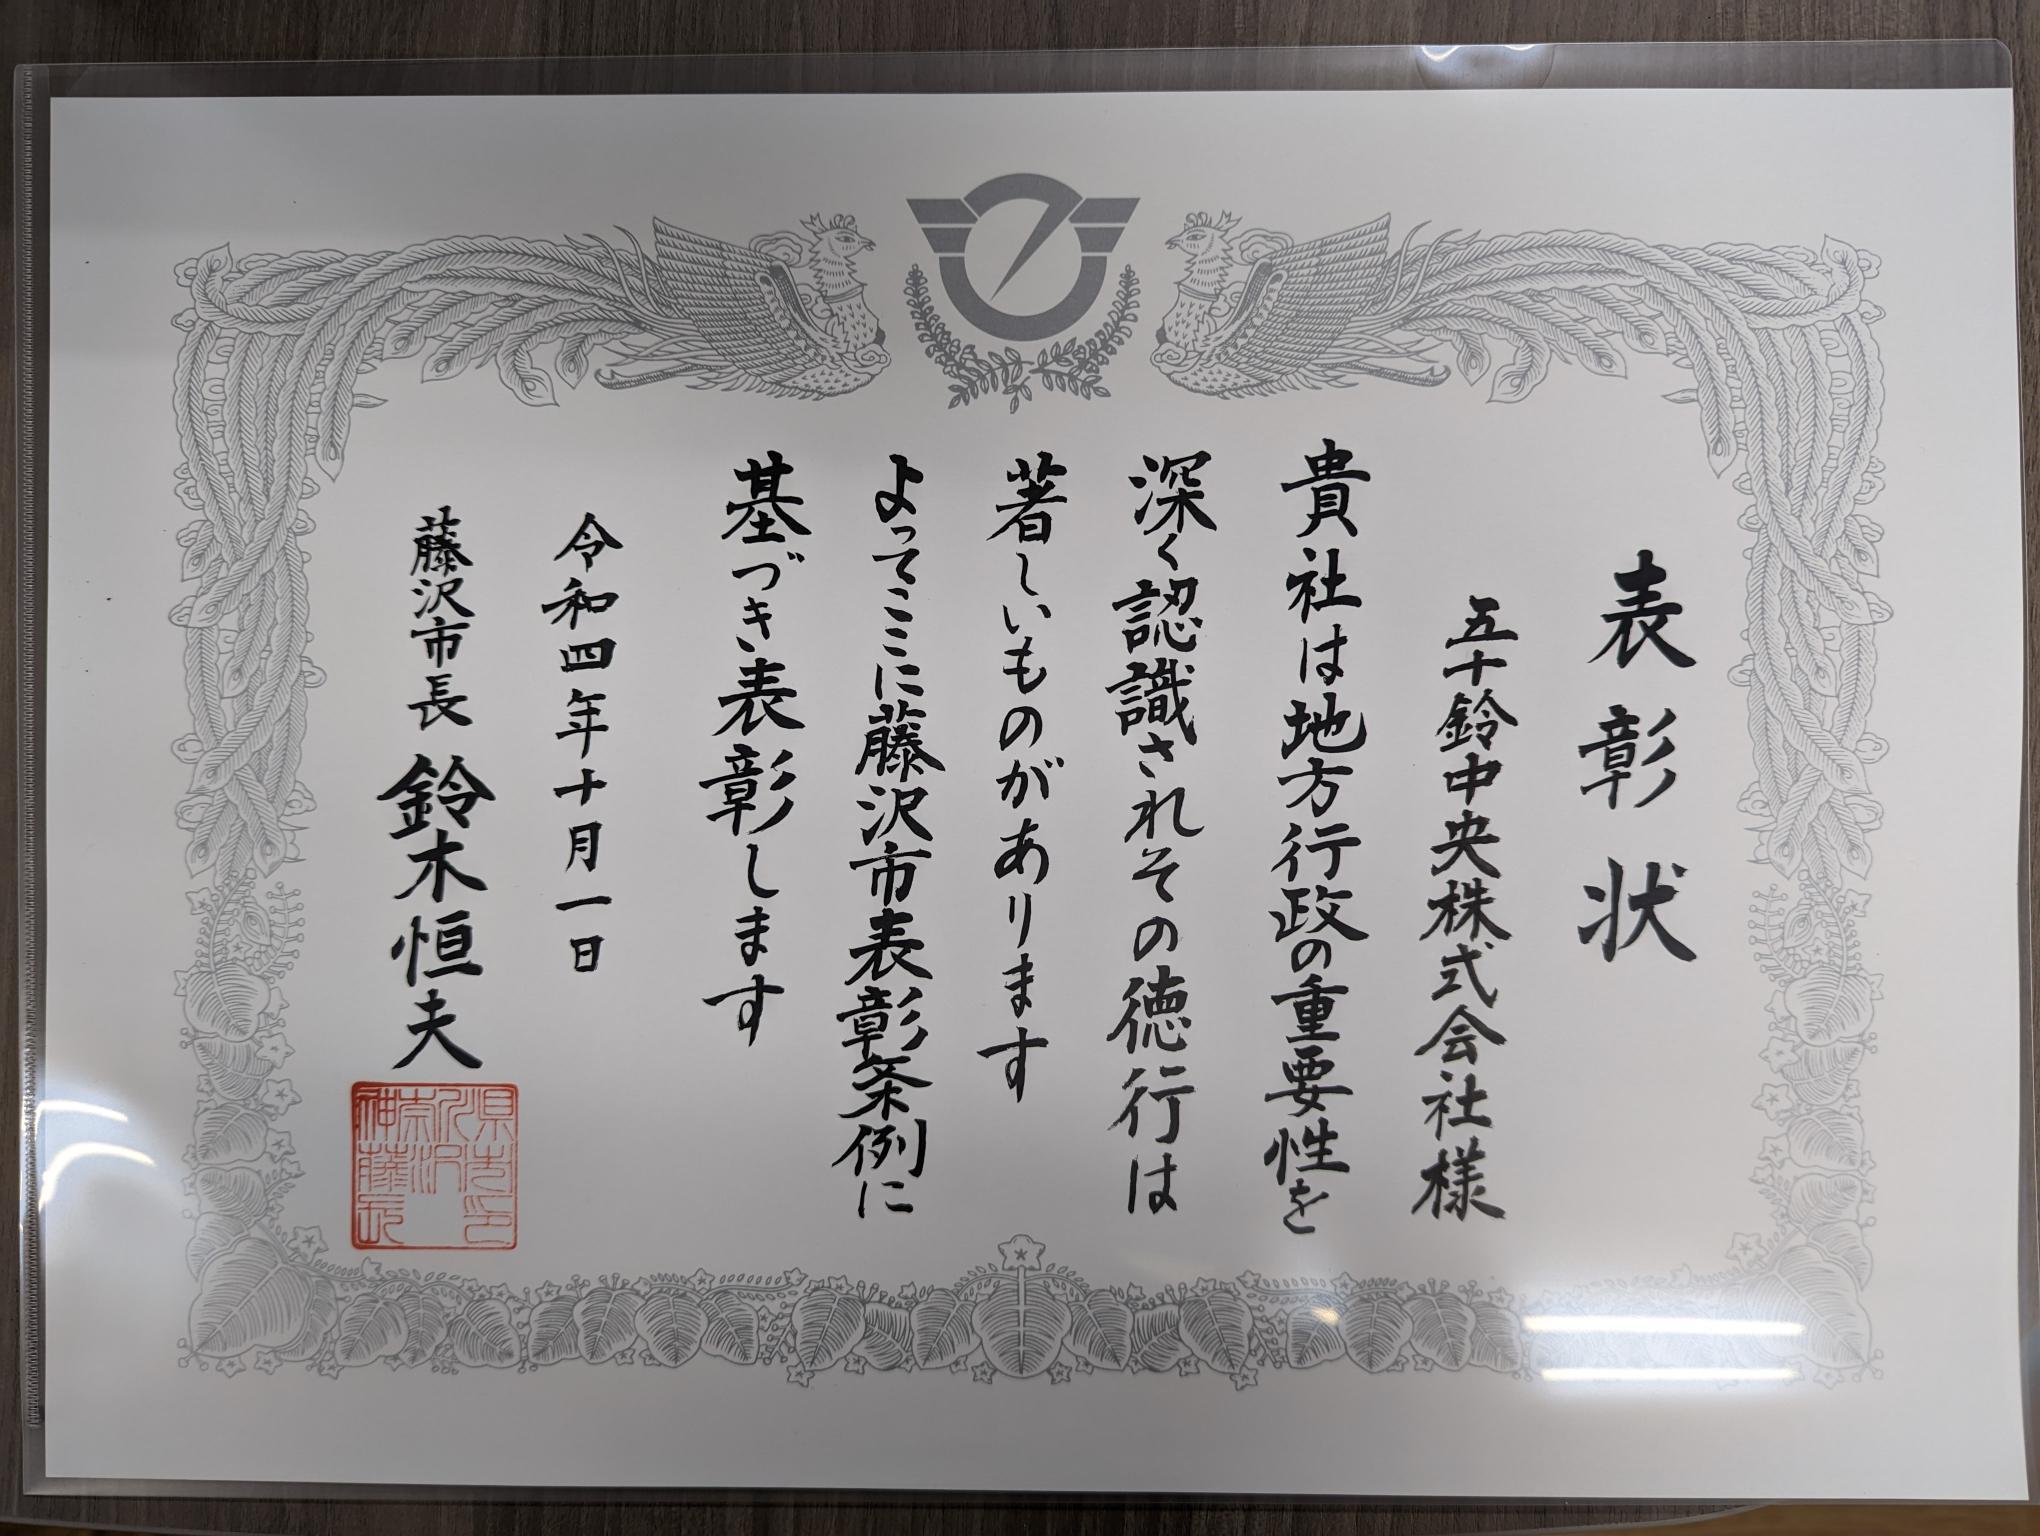 表彰状
五十鈴中央株式会社様
貴社は地方行政の重要性を
深く認識されその徳行は
著しいものがあります
よってここに藤沢市表彰条例に
基づき表彰します
令和四年十月一日
藤沢市長 鈴木恒夫
神奈川県藤沢市長印